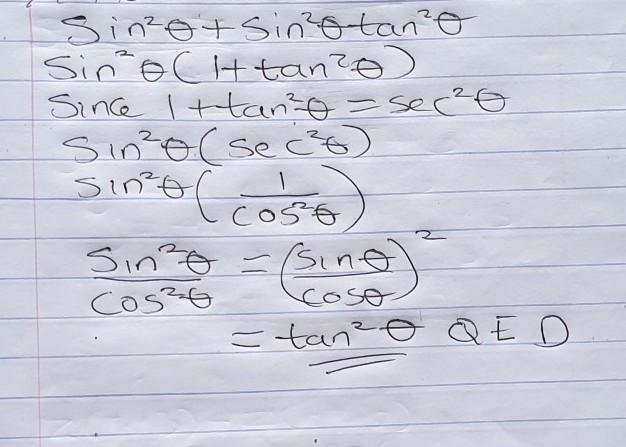 Sin²θ + Sin²θ tan²θ
Sin²θ ( 1 + tan²θ )
Since 1 + tan²θ = sec²θ
Sin²θ ( sec²θ )
Sin²θ ( 1 / cos²θ )
Sin²θ / Cos²θ = ( sinθ / cosθ )²
= tan²θ Q E D